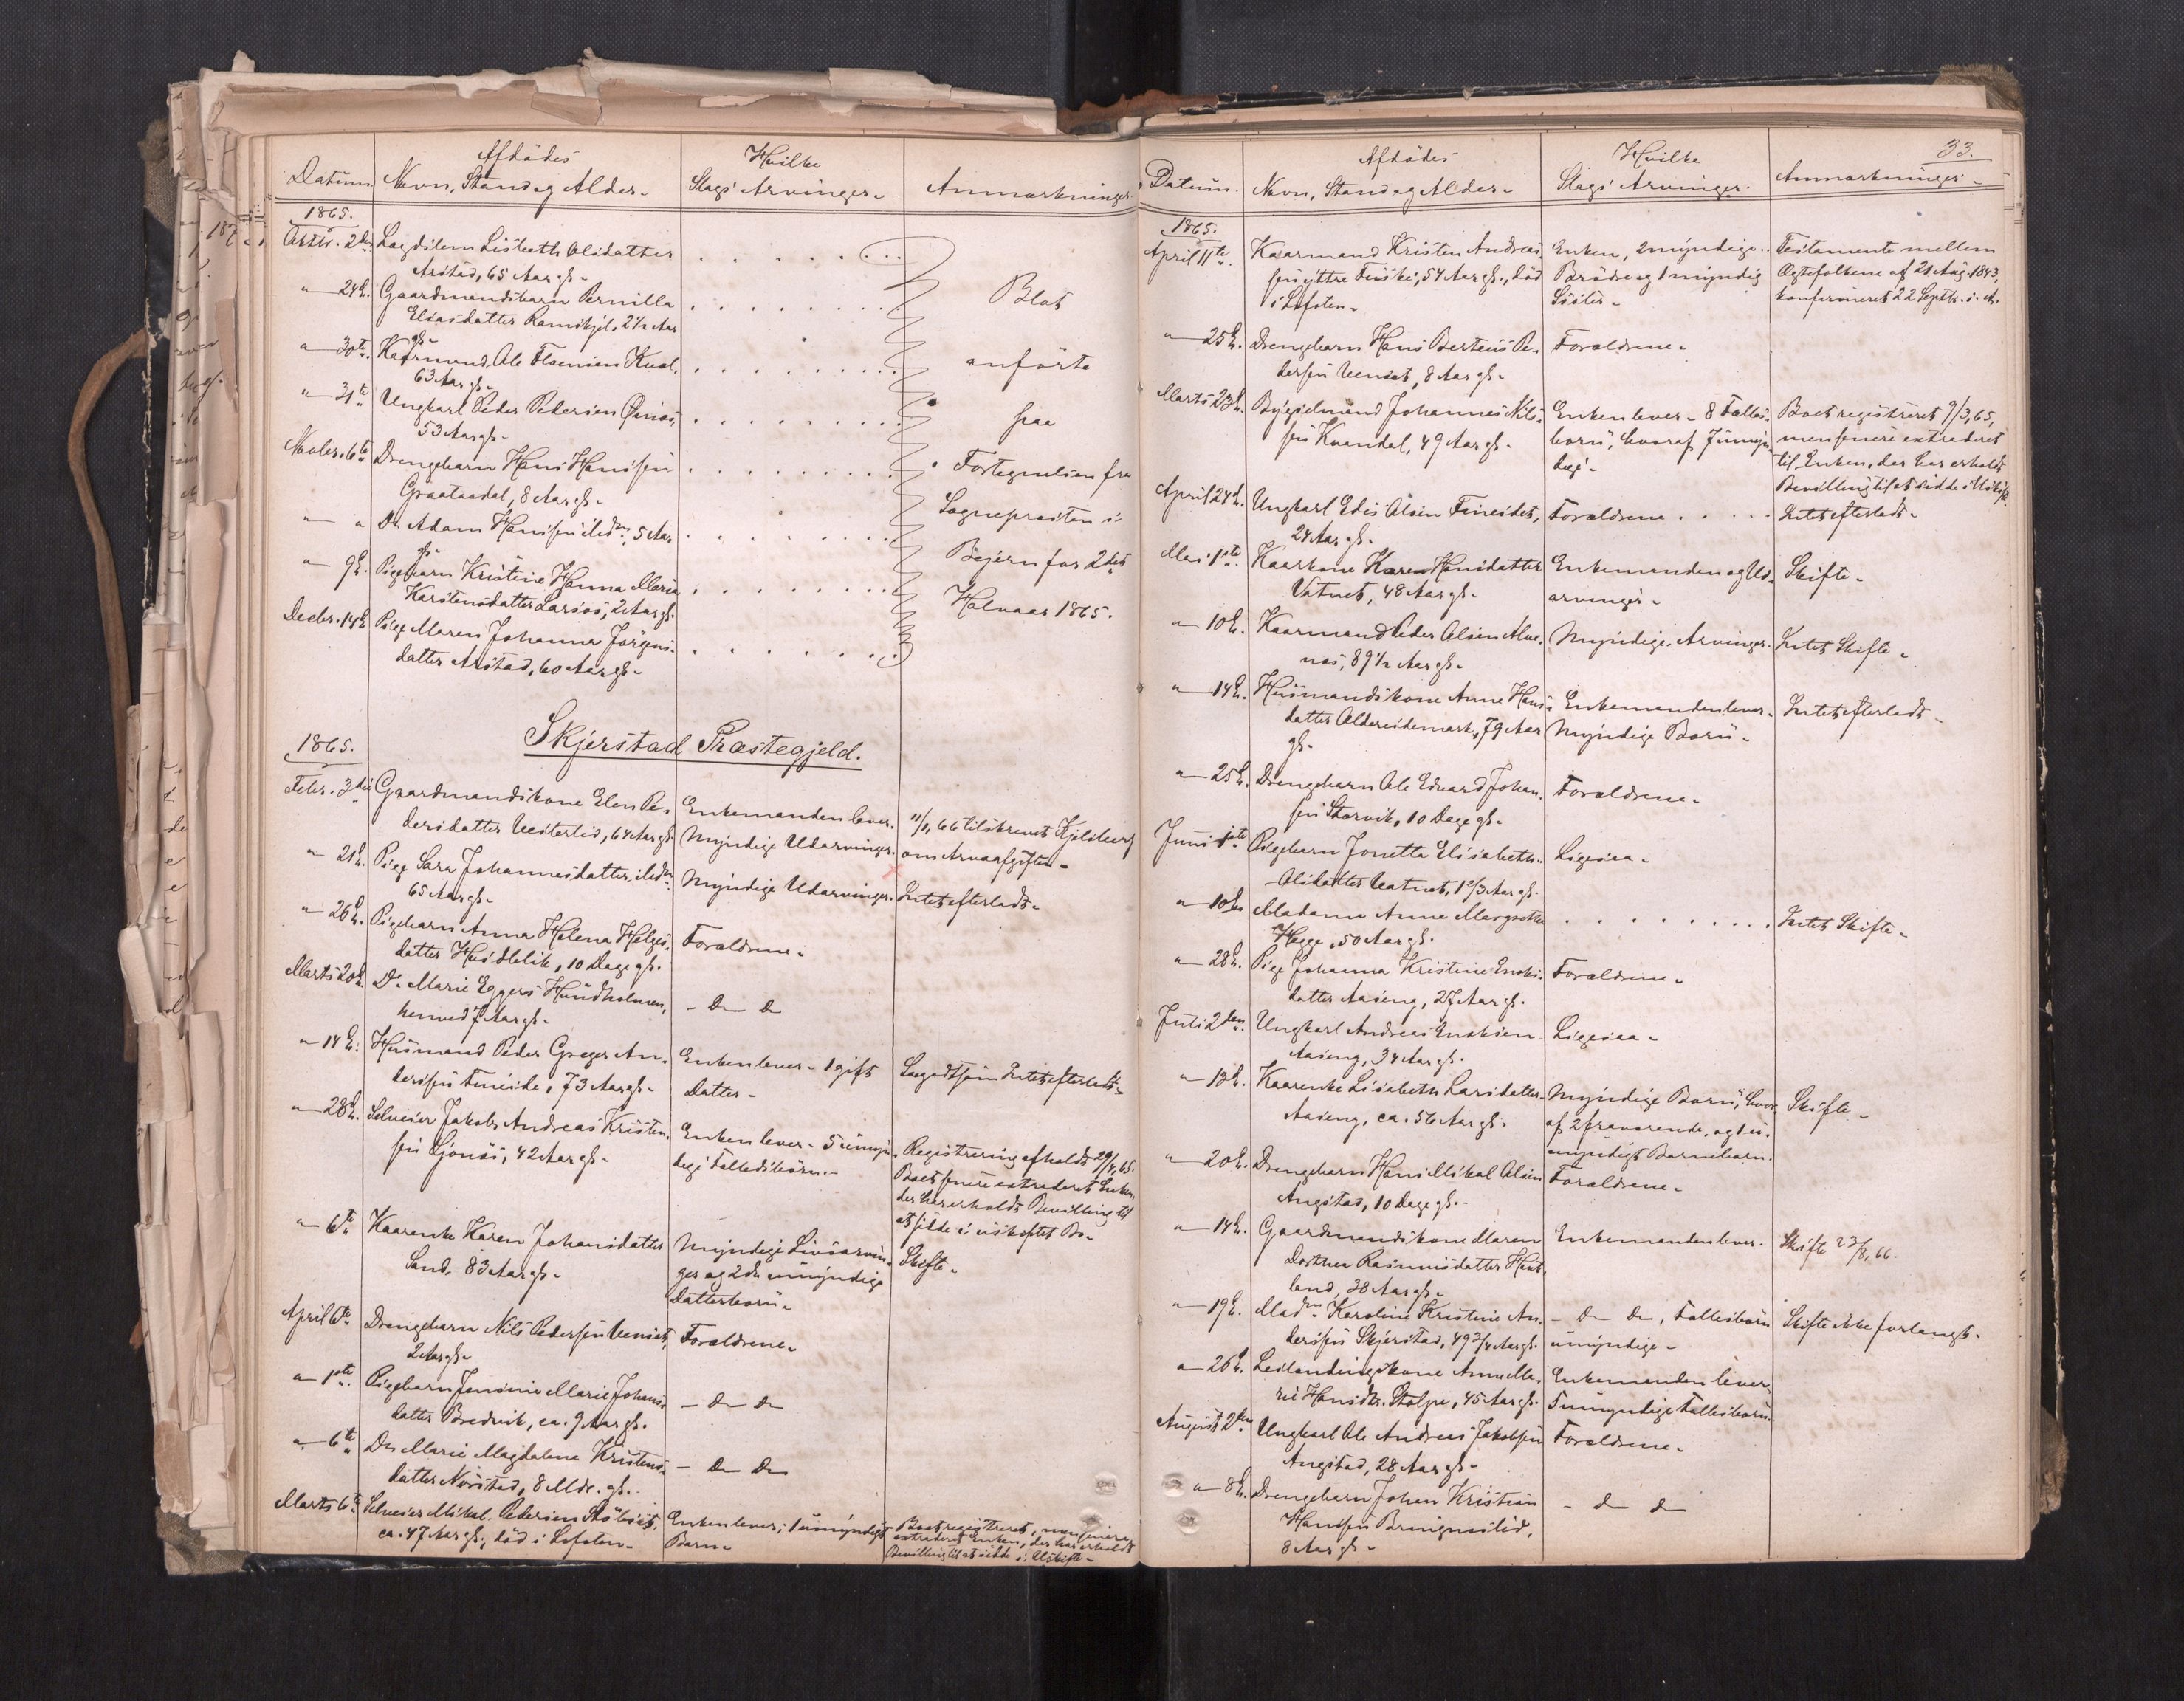 Afdödes
Hvilke
Datum. Navn, Stand og Alder. Slags Arvinger. Anmærkninger.
1865.
2den Lægdslem Lisbeth Olsdatter
Arstad, 65 Aar gl.
" 24de. Gaardmandsbarn Pernilla
Eliasdatter Ramskjel, 2 1/2 Aar
gl.
Blot
" 30te. Kaarmand Ole
63 Aar gl.
anförte
" 31te Ungkarl Peder Pedersen
53 Aar gl.
paa
Novbr. 6te Drengebarn Hans Hanssen
Graataadal, 8 Aar gl.
Fortegnelsen fra
" " Do. Adam Hanssen ibdm., 5 Aar
gl.
Sognepresten i
" 9de. Pigebarn Kristine Hanna Maria
Karstensdatter Larsos, 2 Aar gl.
Bejern for 2det
Halvaar 1865.
Decbr. 14de Pige Maren Johanna Jörgens-
datter Arstad, 60 Aar gl.
Skjerstad Præstegjeld.
1865.
Febr. 3die Gaardmandskone Elen Pe-
dersdatter Vesterlid, 64 Aar gl.
Enkemanden lever.
Myndige Udarvinger.
11/1, 66 tilskrevet Kjelsberg
om Arveafgiften
" 21de. Pige Sara Johannesdatter, ibdm.
65 Aar gl.
Myndige Udarvinger. Intet efterladt.
" 26de. Pigebarn Anna Helena Helges-
datter, 10 Dage gl.
Forældrene.
Marts 20de Do. Marie Eggers Hundholmen,
henved 7 Aar gl.
- Do Do
" 14de. Husmand Peder Greger An-
derssen Fineide, 73 Aar gl.
Enken lever. 1 gift
Datter.
Saagodtsom Intet efterladt.
" 28de. Selveier Jakob Andreas Kristen-
sen Ljönæs, 42 Aar gl.
Enken lever. 5 umyn-
dige Fællesbörn.
Registrering afholdt 29/4, 65.
Boet senere extraderet Enken,
der har erholdt Bevilling til
at sidde i uskiftet Bo.
" 6te Kaarenke Karen Johansdatter
Sand. 83 Aar gl.
Myndige Livsarvin-
ger og 2de umyndige
Datterbörn.
Skifte.
April 6te Drengebarn Nils Pedersen Venset,
2 Aar gl.
Forældrene.
" 1ste. Pigebarn Jensine Marie Johans-
datter Bredvik, ca. 9 Aar gl.
- Do Do
" 6te Do Marie Magdalene Kristens-
datter Növstad, 8 Mdr. gl.
- Do Do
Marts 6te. Selveier Mikal Pedersen
ca. 47 Aar gl., död i Lofoten.
Enken lever; 1 umyndigt
Barn.
Boet registreret, men senere
extraderet Enken, der har erholdt
Bevilling til at sidde i Uskifte.
33.
Afdödes
Hvilke
Datum. Navn, Stand og Alder. Slags Arvinger. Anmærkninger.
1865.
April 11te. Kaarmand Kristen Andreas-
sen yttre Finske, 54 Aar gl., död
i Lofoten.
Enken, 2 myndige
Brödre og 1 myndig
Söster.
Testamente mellem
Ægtefolkene af 21 Aug. 1843,
konfirmeret 22 Septbr. s. A.
" 25de. Drengebarn Hans Berteus Pe-
dersen Venset, 8 Aar gl.
Forældrene.
Marts 23de. Bygselmand Johannes Nils-
sen Kvandal, 49 Aar gl.
Enken lever. 8 Fælles-
börn, hvoraf 7 umyn-
dige.
Boet registreret 9/3, 65,
men senere extraderet
til Enken, der har erholdt
Bevilling til at sidde i Uskifte.
April 24de. Ungkarl Edis Olsen Fineidet,
24 Aar gl.
Forældrene.
Intet efterladt.
Mai 1ste. Kaarkone Karen Hansdatter
Vatnet, 48 Aar gl.
Enkemanden og Ud-
arvinger.
Skifte.
" 10de. Kaarmand Peder Olsen Alve-
nes, 89 1/2 Aar gl.
Myndige Arvinger. Intet Skifte.
" 14de. Husmandskone Anne Hans-
datter Oldereidemark, 79 Aar
gl.
Enkemanden lever.
Myndige Börn.
Intet efterladt.
" 25de. Drengebarn Ole Edvard Johan-
sen Storvik, 10 Dage gl.
Forældrene.
Juni 1ste. Pigebarn Jonetta Elisabeth
Olsdatter Vatnet, 1 2/3 Aar gl.
Ligesaa.
" 10de Madame Anna Margrethe
Hegge, 50 Aar gl.
Intet Skifte.
" 28de. Pige Johanna Kristine Enoks-
datter Aaseng, 27 Aar gl.
Forældrene.
Juli 2den. Ungkarl Andreas Enoksen
Aaseng, 34 Aar gl.
Ligesaa.
" 13de. Kaarenke Lisabeth Larsdatter
Aaseng, ca. 56 Aar gl.
Myndige Börn, hvor-
af 2 fraværende, og 1 u-
myndigt Barnebarn.
Skifte.
" 20de. Drengebarn Hans Mikal Olsen
Angstad, 10 Dage gl.
Forældrene.
" 14de. Gaardmandskone Maren
Dorthea Rasmusdatter
land, 38 Aar gl.
Enkemanden lever.
Skifte 23/8, 66.
" 19de. Madm. Karoline Kristine An-
derssen Skjerstad, 49 3/4 Aar gl.
- Do Do, Fællesbörn
umyndige.
Skifte ikke forlangt.
" 26de. Leilændingskone Anne Ma-
rie Hansdtr. Stolpe, 45 Aar gl.
Enkemanden lever.
5 umyndige Fællesbörn.
August 2den Ungkarl Ole Andreas Jakobsen
Angstad, 28 Aar gl.
Forældrene.
" 8de. Drengebarn Johan Kristian
Hanssen Bringneslid,
8 Aar gl.
- Do Do